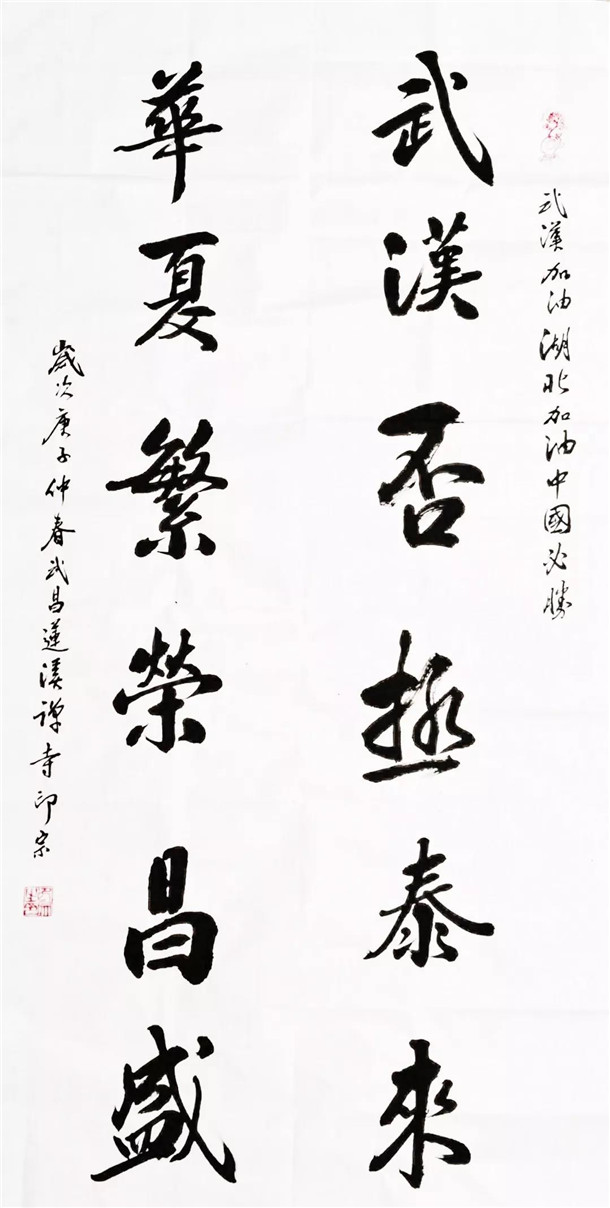 武漢加油湖北加油中國必勝
武漢否極泰來
華夏繁榮昌盛
歲次庚子仲春武昌蓮溪禪寺印宗